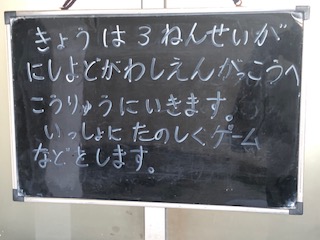 きょうは3ねんせいが
にしよどがわしえんがっこうへ
こうりゅうにいきます。
いっしょにたのしくゲーム
などをします。